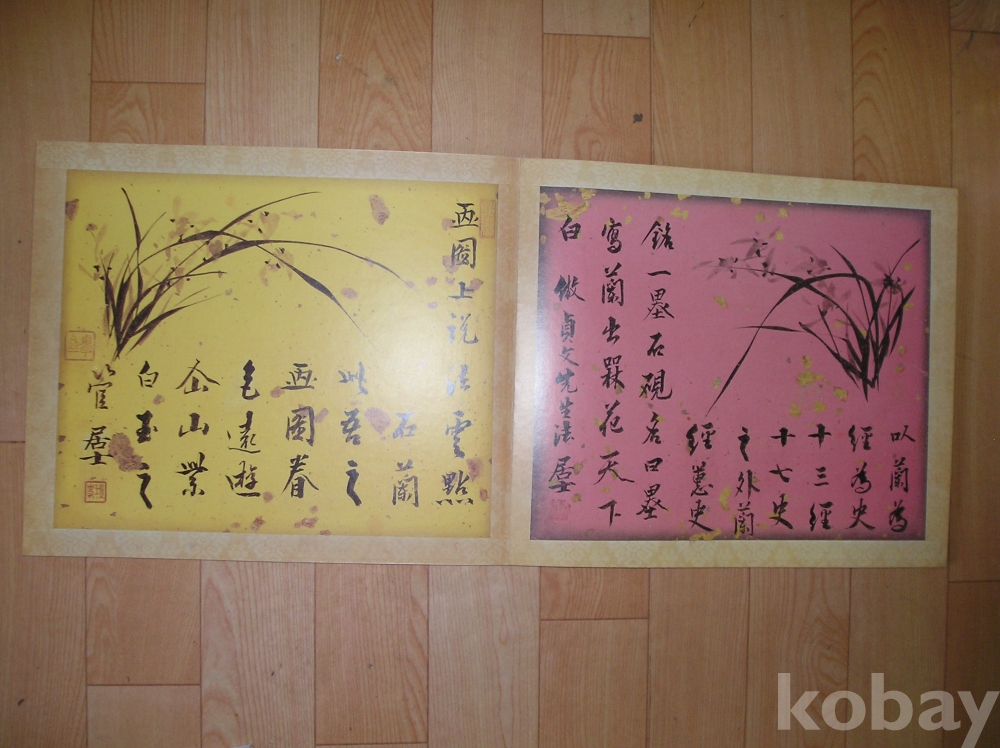 以蘭為
經為史
十三經
十七史
之外蘭
經蕙史
銘一墨石硯名曰墨
寫蘭出罧花天下
白
倣貞文先生法 居士
画圖上說法雲點
石蘭
此吾之
画图眷
毛遠遊
山業
白玉之
管
居士
kobay